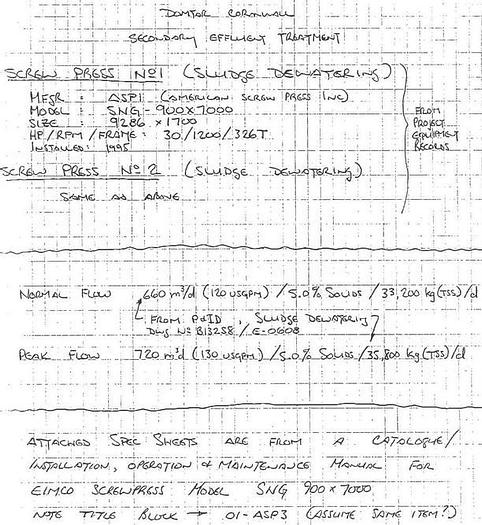 DOMTAR CORNWALL
SECONDARY EFFLUENT TREATMENT
SCREW PRESS Nº1 (SLUDGE DEWATERING)
MFGR : ASPI (AMERICAN SCREW PRESS INC)
MODEL : SNG - 900x7000
SIZE : 9286 x 1700
HP/RPM/FRAME: 30/1200/326T
INSTALLED: 1995
FROM
PROJECT
EQUIPMENT
RECORDS
SCREW PRESS Nº 2 (SLUDGE DEWATERING)
SAME AS ABOVE
NORMAL FLOW 660 m³/d (120 USGPM) / 5.0% SOLIDS / 33,200 kg (TSS)/d
FROM P&ID, SLUDGE DEWATERING
DWG Nº B13258 / E-0608
PEAK FLOW 720 m³/d (130 USGPM) / 5.0% SOLIDS / 35,800 kg (TSS)/d
ATTACHED SPEC SHEETS ARE FROM A CATALOGUE/
INSTALLATION, OPERATION & MAINTENANCE MANUAL FOR
EIMCO SCREWPRESS MODEL SNG 900x7000
NOTE TITLE BLOCK → 01-ASP3 (ASSUME SAME ITEM?)